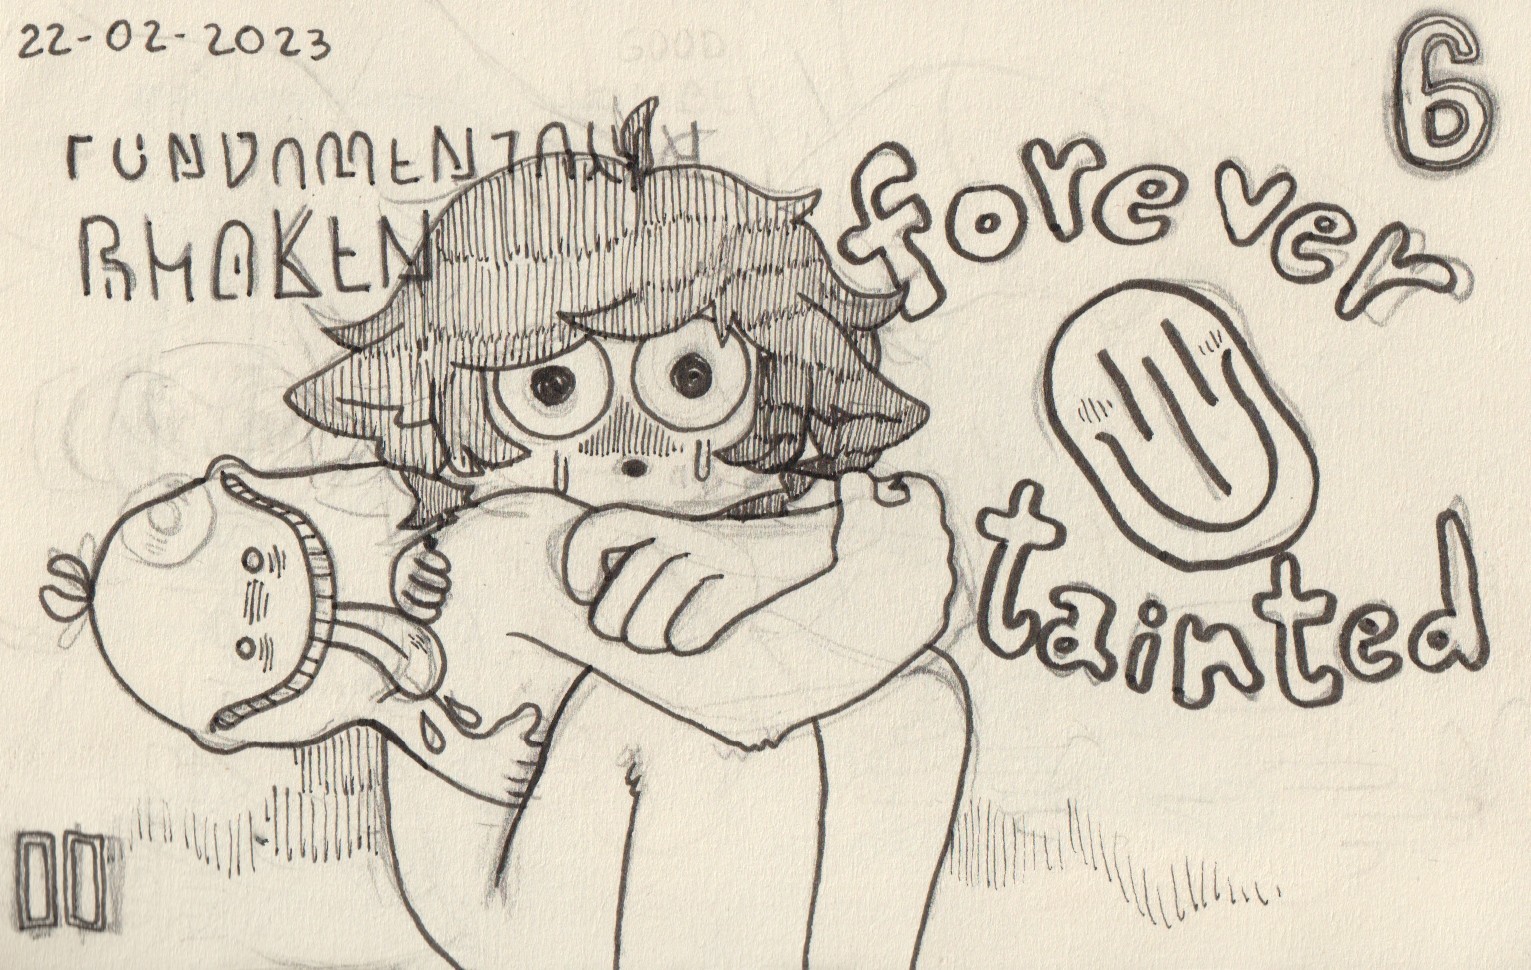 22-02-2023
6
FUNDAMENTALLY
SHAKEN
forever
tainted